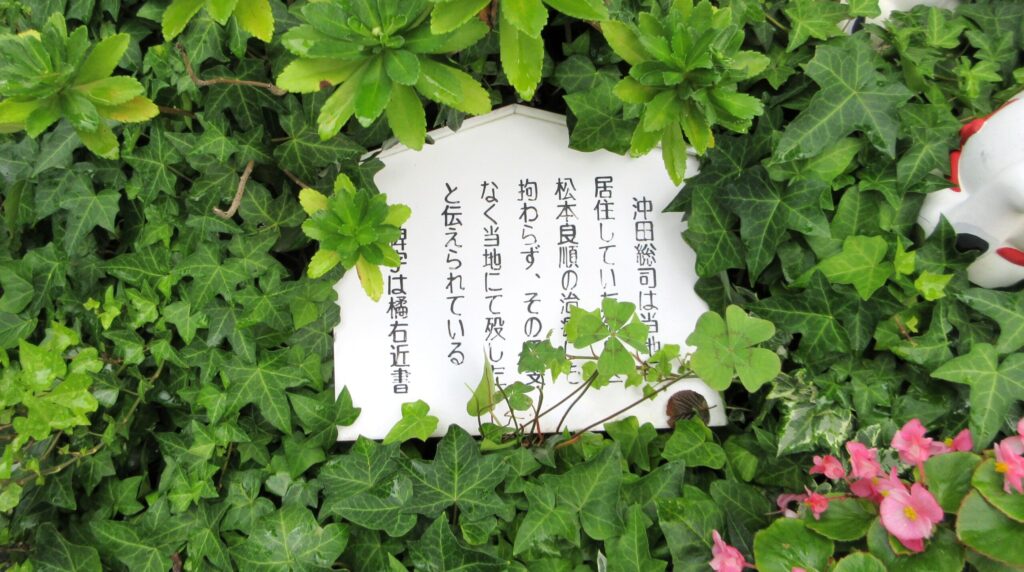 沖田総司は当地
居住してい
松本良順の治
拘わらず、その
なく当地にて歿した
と伝えられている
碑字は橘右近書